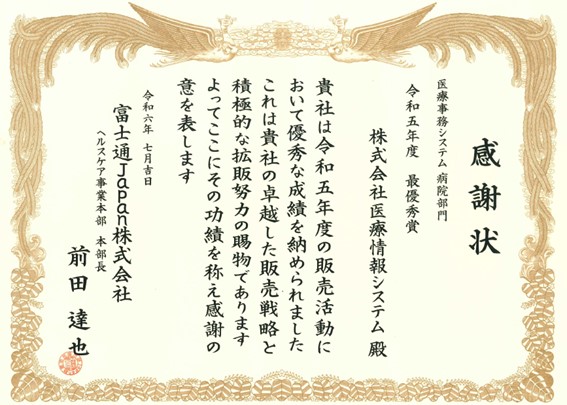 感謝状
医療事務システム 病院部門
令和五年度 最優秀賞
株式会社医療情報システム 殿
貴社は令和五年度の販売活動に
おいて優秀な成績を納められました
これは貴社の卓越した販売戦略と
積極的な拡販努力の賜物であります
よってここにその功績を称え感謝の
意を表します
令和六年 七月吉日
富士通Japan株式会社
ヘルスケア事業本部 本部長
前田 達也